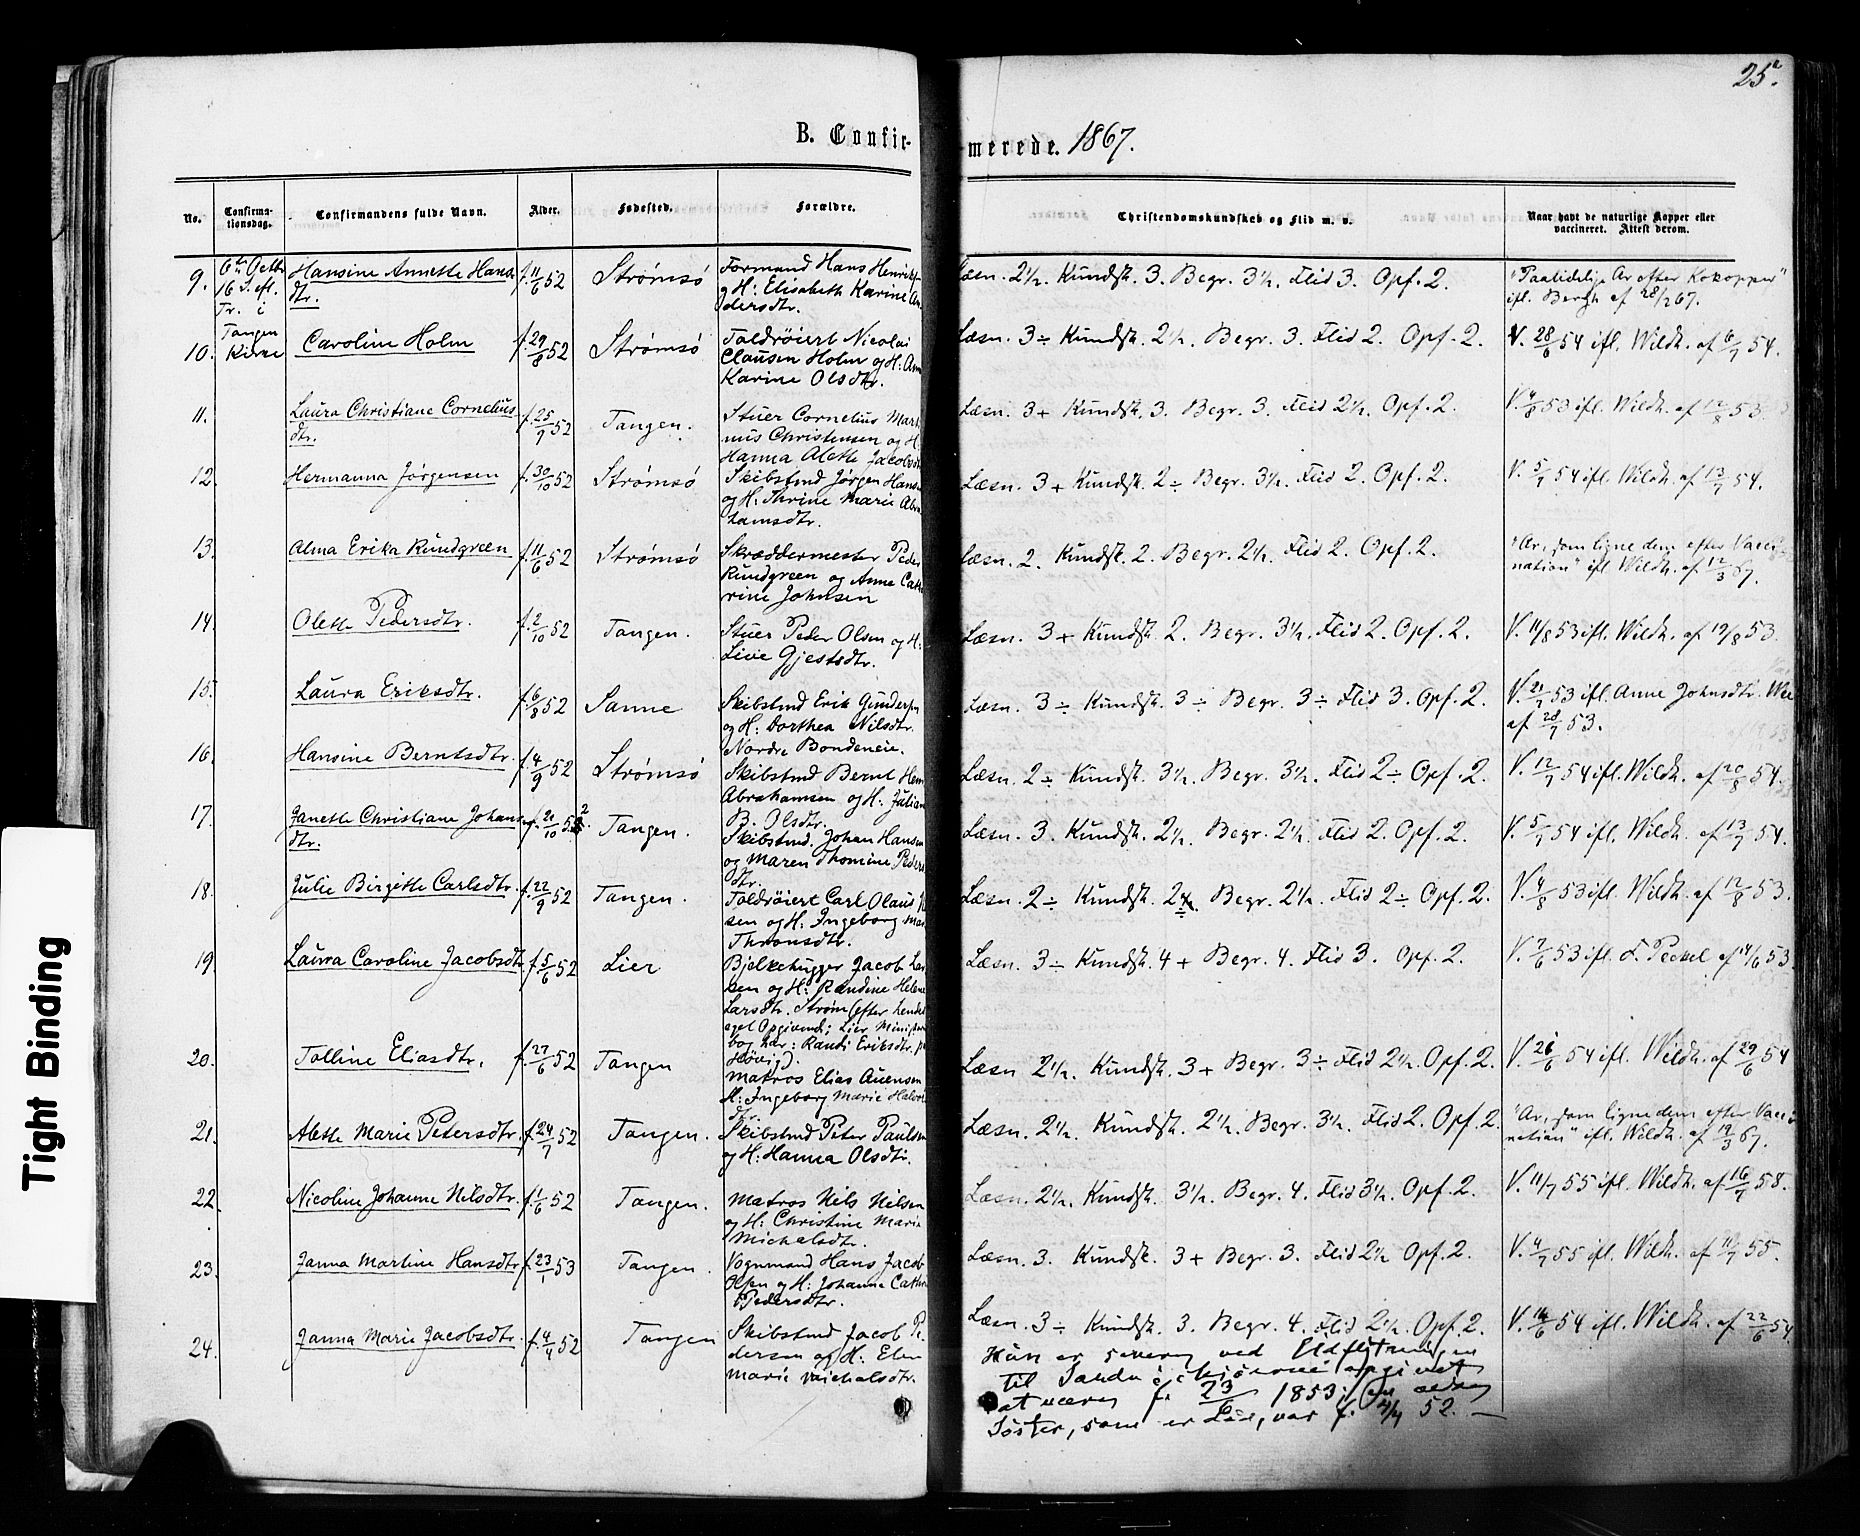 25.
B. Confir-
merede. 1867.
No.
Confirma-
tionsdag.
Confirmandens fulde Navn.
Alder.
Fødested.
Forældre.
Christendomskundskab og Flid m. v.
Naar havt de naturlige Kopper eller
vaccineret. Attest derom.
6te Octbr
16 S. efl.
Tr. i
Tangen
Kirke
9. Hansine Annette Hans-
dtr.
f. 11/6 52
Strømsø
Formand Hans Henriks
og H: Elisabeth Karine An
dersdtr.
Læsn. 2 1/2. Kundsk. 3. Begr. 3 1/2. Flid 3. Opf. 2.
"Paalidelig Ar efter Kokopper"
ifl. Bergh af 28/2 67.
10. Caroline Holm
f. 29/8 52
Strømsø
Toldrøiert Nicolai
Clausen Holm og H: Ann
Karine Olsdtr.
Læsn. 3 ÷ Kundsk. 2 1/2. Begr. 3. Flid 2. Opf. 2.
V. 28/6 54 ifl. Wildh. af 6/7 54.
11. Laura Christiane Cornelius-
dtr.
f. 25/7 52
Tangen.
Stuer Cornelius Mart
nus Christensen og H:
Hanna Alette Jacobsdt
Læsn. 3 + Kundsk. 3. Begr. 3. Flid 2 1/2. Opf. 2.
V. 4/8 53 ifl. Wildh. af 12/8 53.
12. Hermanna Jørgensen
f. 30/10 52
Strømsø
Skibstmd Jørgen Hanse
og H. Thrine Marie Abra
hamsdtr.
Læsn. 3 + Kundsk. 2 ÷ Begr. 3 1/2. Flid 2. Opf. 2.
V. 5/7 54 ifl. Wildh. af 13/7 54.
13. Alma Erika Rundgreen
f. 11/6 52
Strømsø
Skræddermester Peder
Rundgreen og Anne Cath
rine Johnsen
Læsn. 2. Kundsk. 2. Begr. 2 1/2. Flid 2. Opf. 2.
"Ar, som ligne dem efter Vacci-
nation" ifl. Wildh. af 12/3 67.
14. Olette Pedersdtr.
f. 2/10 52
Tangen.
Stuer Peder Olsen og H:
Live Gjestsdtr.
Læsn. 3 + Kundsk. 2. Begr. 3 1/2. Flid 2. Opf. 2.
V. 11/8 53 ifl. Wildh. af 19/8 53.
15. Laura Eriksdtr.
f. 6/8 52
Sanne
Skibstmd Erik Gunders
og H: Dorthea Nilsdtr.
Nordre Bondeneie.
Læsn. 3 ÷ Kundsk. 3 ÷ Begr. 3 ÷ Flid 3. Opf. 2.
V. 21/7 53 ifl. Anne Johnsdtr.
af 28/7 53.
16. Hansine Berntsdtr.
f. 4/9 52
Strømsø
Skibstmd Bernt Hen
Abrahamsen og H: Julian
B. Olsdtr.
Læsn. 2 ÷ Kundsk. 3 1/2. Begr. 3 1/2. Flid 2 ÷ Opf. 2.
V. 12/7 54 ifl. Wildh. af 20/8 54.
17. Janette Christiane Johans
dtr.
f. 21/10 52
Tangen.
Skibstmd. Johan Hansen
og Maren Thomine Peders
dtr.
Læsn. 3. Kundsk. 2 1/2. Begr. 2 1/2. Flid 2. Opf. 2.
V. 5/7 54 ifl. Wildh. af 13/7 54.
18. Julie Birgitte Carlsdtr.
f. 22/9 52
Tangen.
Toldrøiert Carl Olaus
sen og H: Ingeborg Mar
Thronsdtr.
Læsn. 2 ÷ Kundsk. 2 ÷ Begr. 2 1/2. Flid 2 ÷ Opf. 2.
V. 4/8 53 ifl. Wildh. af 12/8 53.
19. Laura Caroline Jacobsdtr.
f. 5/6 52
Lier
Bjelkehugger Jacob Lar
sen og H: Randine Helene
Larsdtr. Strøm (efter hendes
eget Opgivend; Lier Minister
bog har: Randi Eriksdtr. p
Høvig).
Læsn. 3 ÷ Kundsk. 4 + Begr. 4. Flid 3. Opf. 2.
V. 7/6 53 ifl. F. Peckel af 14/6 53.
20. Tolline Eliasdtr.
f. 27/6 52
Tangen
Matros Elias Auensen
H: Ingeborg Marie Halvor
dtr.
Læsn 2 1/2. Kundsk. 3 + Begr. 3 ÷ Flid 2 1/2. Opf. 2.
V. 26/6 54 ifl. Wildh. af 29/6 54
21. Alette Marie Petersdtr.
f. 24/7 52
Tangen.
Skibstmd Peter Paulsen
og H: Hanna Olsdtr.
Læsn. 2 1/2. Kundsk. 2 1/2. Begr. 3 1/2. Flid 2. Opf. 2.
"Ar, som ligne dem efter Vacci-
nation" ifl. Wildh. af 19/3 67.
22. Nicoline Johanne Nilsdtr.
f. 1/6 52
Tangen.
Matros Nils Nilsen
og H: Christine Marie
Michalsdtr.
Læsn. 2 1/2. Kundsk. 3 1/2. Begr. 4. Flid 3 1/2. Opf. 2.
V. 11/7 55 ifl. Wildh. af 16/7 58.
23. Janna Martine Hansdtr.
f. 23/1 53
Tangen.
Vognmand Hans Jacob
Olsen og H: Johanne Cathr
Pedersdtr.
Læsn. 3. Kundsk. 3 + Begr. 3. Flid 2 1/2 Opf. 2.
V. 4/7 55 ifl. Wildh. af 10/7 55.
24. Janna Marie Jacobsdtr.
f. 4/4 52
Tangen
Skibstmd Jacob Pe
dersen og H: Elen
Marie Michalsdtr.
Læsn. 3 ÷ Kundsk. 3. Begr. 4. Flid 2 1/2. Opf. 2.
V. 14/6 54 ifl. Wildh. af 22/6 54
Hun er senere ved Udflytningen
til opgivet
at være f. 23/ 1853; en ældre
Søster, som er død, var f. 4/4 52. —
Tight Binding